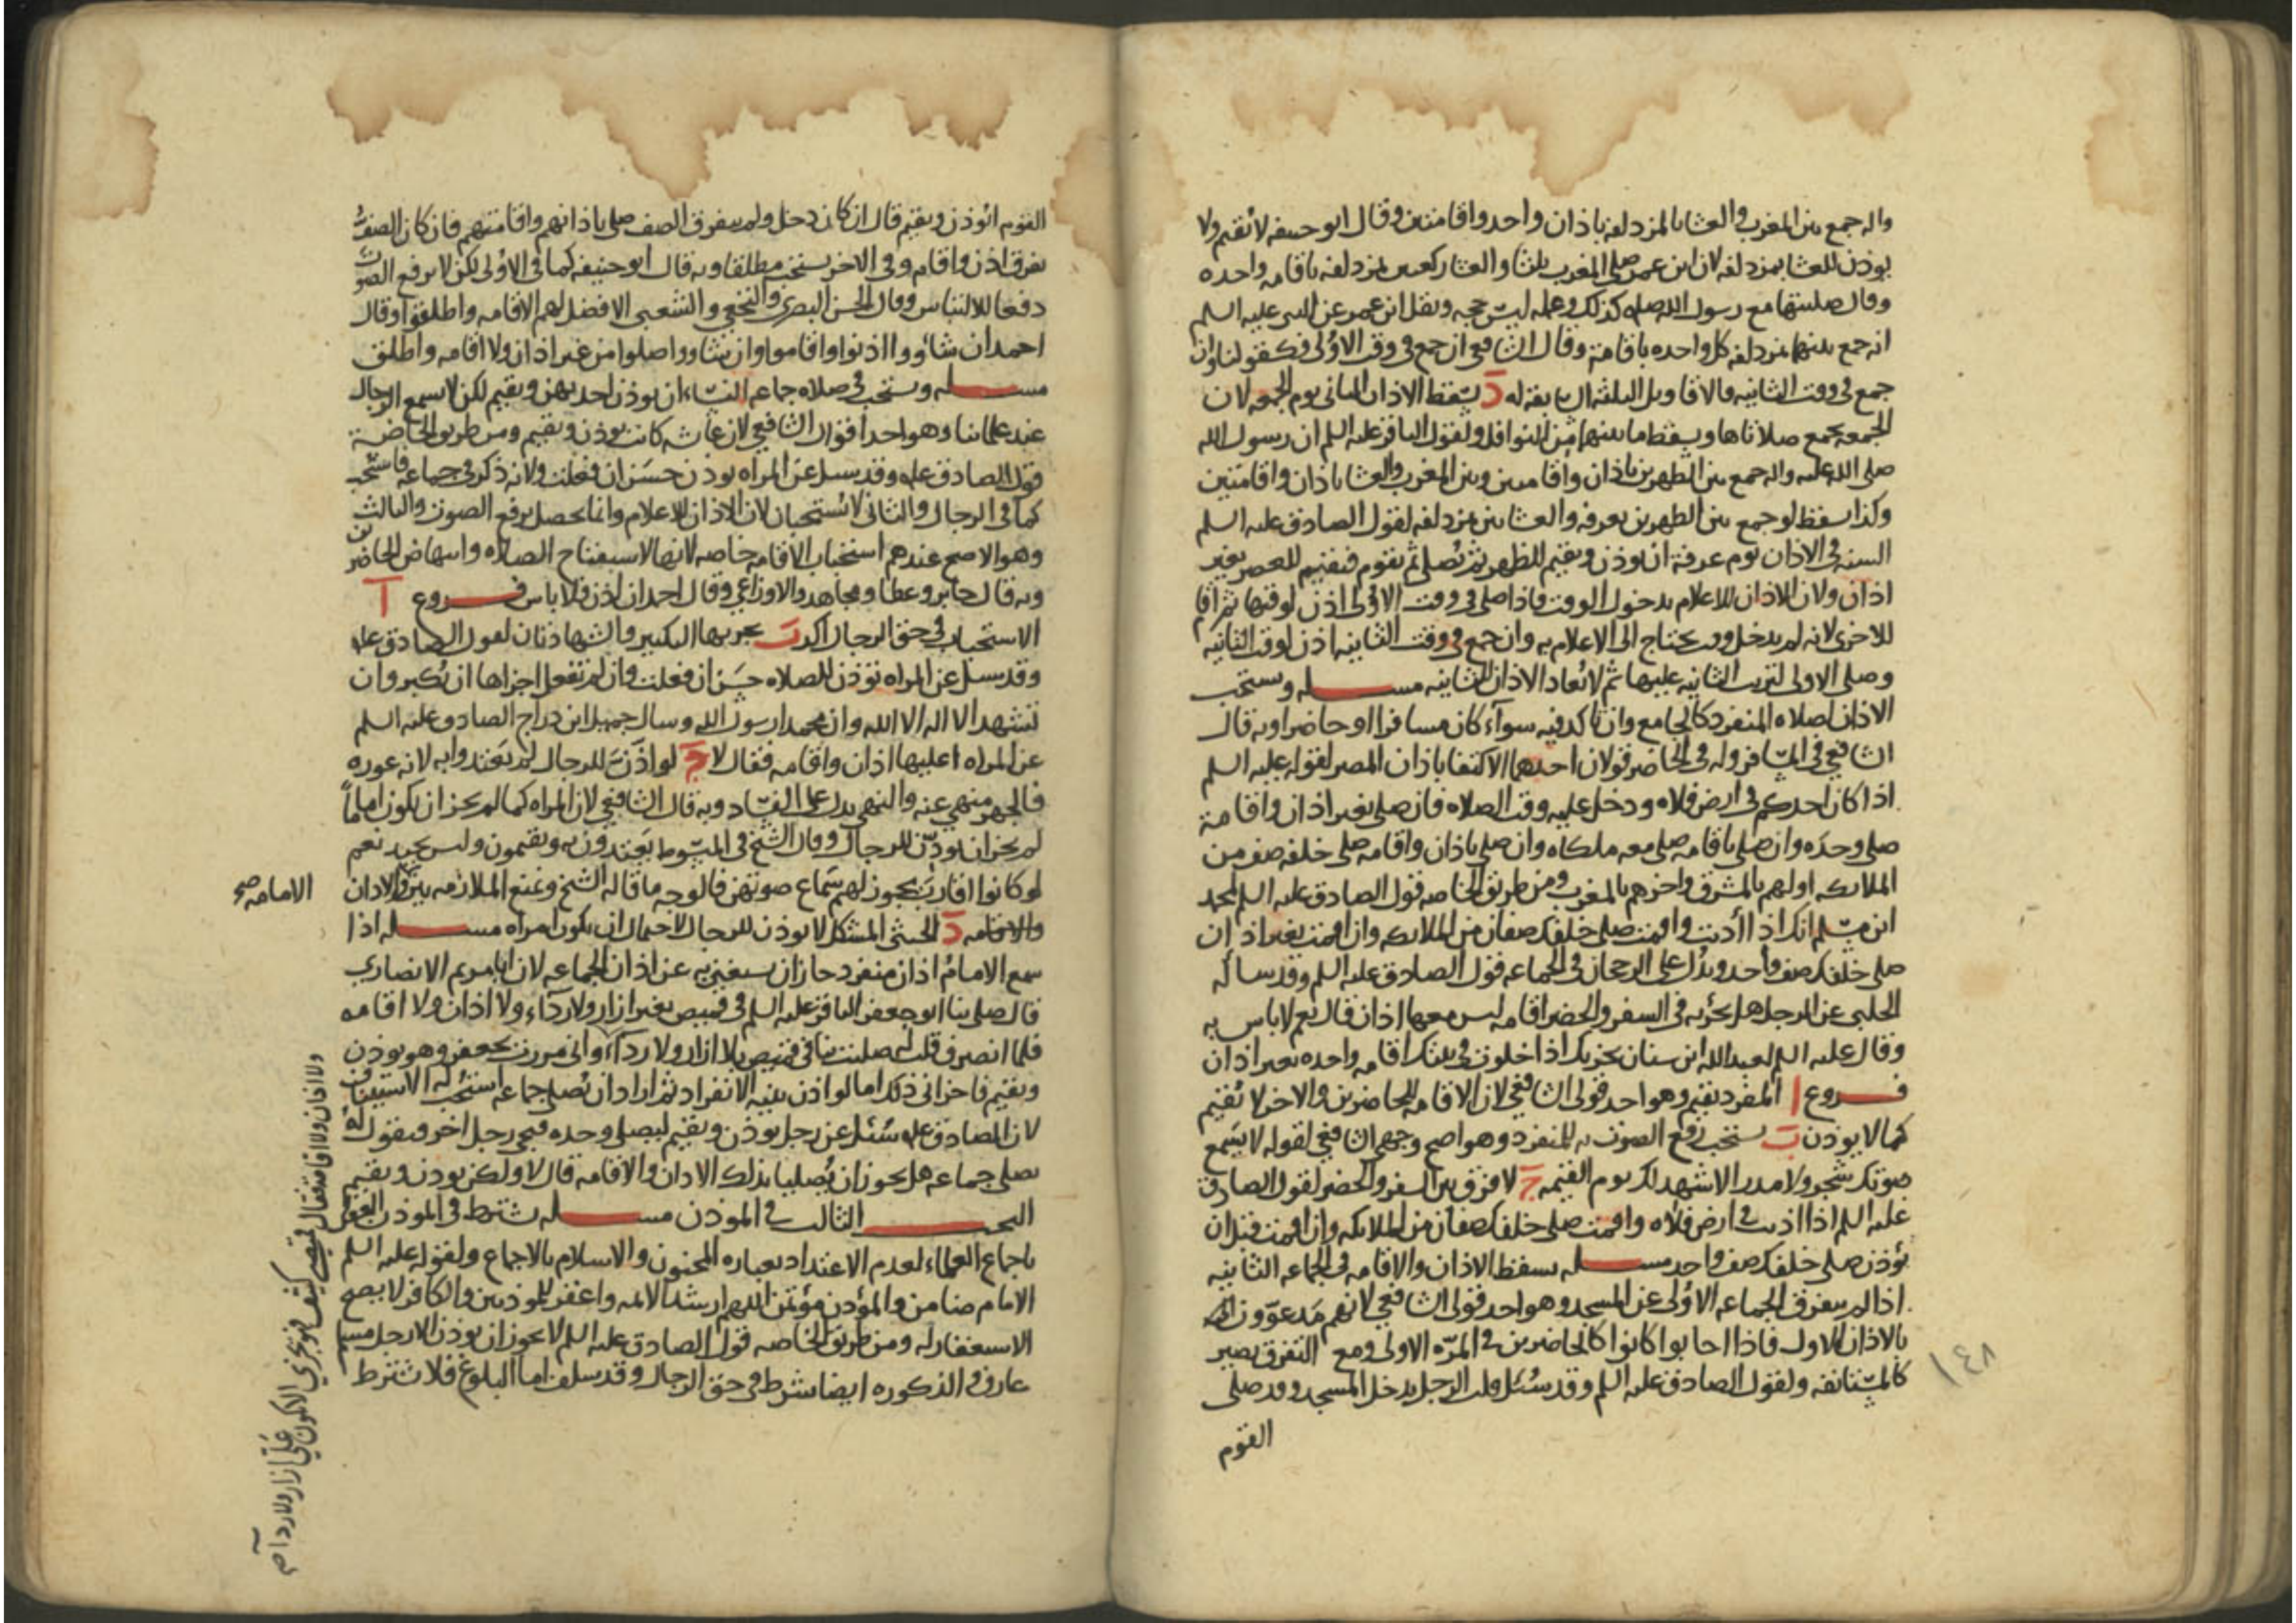 واله جمع بين المغرب والعشا بالمزدلفه باذان واحد واقامتين وقال ابو حنيفه لا نقيم ولا
يوذن للعشا بمزدلفه لان ابن عمر صلى المغرب ثلثا والعشا ركعتين بمزدلفه باقامه واحده
وقال صليتها مع رسول الله صله كذلك وعمله ليس حجه ونقل ابن عمر عن النبي عليه السلم
انه جمع بينهما بمزدلفه كل واحده باقامة وقال الشافعي ان جمع في وقت الاولى فكقولنا وان
جمع في وقت الثانيه فالاقاويل الثلثه السابقه له د يسقط الاذان الثاني يوم الجمعه لان
الجمعه يجمع صلاتاها ويسقط ما بينهما من النوافل ولقول الباقر عليه السلم ان رسول الله
صلى الله عليه واله جمع بين الظهرين باذان واقامتين وبين المغرب والعشا باذان واقامتين
وكذا يسقط لو جمع بين الظهرين بعرفه والعشائين بمزدلفه لقول الصادق عليه السلم
السنه في الاذان يوم عرفة ان يوذن ويقيم للظهر ثم يصلي ثم يقوم فيقيم للعصر بغير
اذان ولان الاذان للاعلام بدخول الوقت فاذا صلى في وقت الاولى اذن لوقتها ثم اقام
للاخرى لانه لم يدخل وقت يحتاج الى الاعلام به وان جمع في وقت الثانيه اذن لوقت الثانيه
وصلى الاولى لترتب الثانيه عليها ثم لا يعاد الاذان للثانيه مسله ويستحب
الاذان لصلاه المنفرد كالجامع وان تاكد فيه سوآء كان مسافرا او حاضرا وبه قال
الشافعي في المسافر وله في الحاضر قولان احدهما الاكتفا باذان المصر لقوله عليه السلم
اذا كان احدكم في ارض فلاه ودخل عليه وقت الصلاه فان صلى بغير اذان واقامة
صلى وحده وان صلى باقامه صلى معه ملكاه وان صلى باذان واقامه صلى خلفه صف من
الملائكه اولهم بالمشرق واخرهم بالمغرب ومن طريق الخاصه قول الصادق عليه السلم لمحمد
ابن مسلم انك اذا اذنت واقمت صلى خلفك صفان من الملائكه وان اقمت بغير اذان
صلى خلفك صف واحد ويدل على الرجحان في الجماعه قول الصادق عليه السلم وقد ساله
الحلبي عن الرجل هل يجزيه في السفر والحضر اقامه ليس معها اذان قال نعم لا باس به
وقال عليه السلم لعبد الله ابن سنان يجزيك اذا خلوت في بيتك اقامه واحده بغير اذان
فروع ا المنفرد يقيم وهو احد قولي الشافعي لان الاقامه للحاضرين والاخر لا يقيم
كما لا يوذن ب يستحب رفع الصوت به للمنفرد وهو اصح وجهي الشافعي لقوله لا يسمع
صوتك شجر ولا مدر الا شهد لك يوم القيمه ج لا فرق بين السفر والحضر لقول الصادق
عليه السلم اذا اذنت في ارض فلاه واقمت صلى خلفك صفان من الملائكه وان اقمت قبل ان
تؤذن صلى خلفك صف واحد مسله يسقط الاذان والاقامه في الجماعه الثانيه
اذا لم يتفرق الجماعه الاولى عن المسجد وهو احد قولي الشافعي لانهم مدعوون
بالاذان الاول فاذا اجابوا كانوا كالحاضرين في المره الاولى ومع التفرق يصير
كالمستانفه ولقول الصادق عليه السلم وقد سئل قلت الرجل يدخل المسجد وقد صلى
القوم
١٤٨
القوم ايوذن ويقيم قال ان كان دخل ولم يتفرق الصف صلى باذانهم واقامتهم فان كان الصف
تفرق اذن واقام وفي الاخر يستحب مطلقا وبه قال ابو حنيفه كما في الاولى لكن لا يرفع الصوت
دفعا للالتباس وقال الحسن البصري والنخعي والشعبي الافضل لهم الاقامه واطلقوا وقال
احمد ان شاووا اذنوا واقاموا وان شاووا صلوا من غير اذان ولا اقامه واطلق
مسله ويستحب في صلاه جماعه النساء ان يوذن احديهن ويقيم لكن لا يسمع الرجال
عند علمائنا وهو احد اقوال الشافعي لان عائشه كانت يوذن ويقيم ومن طريق الخاصة
قول الصادق عليه وقد سيل عن المراه يوذن حسن ان فعلت ولانه ذكر في جماعه فاستحب
كما في الرجال والثاني لا يستحبان لان الاذان للاعلام وانما يحصل برفع الصوت والثالث
وهو الاصح عندهم استحباب الاقامه خاصه لانها لاستفتاح الصلاه وانتهاض الحاضرين
وبه قال جابر وعطا ومجاهد والاوزاعي وقال احمد ان اذن فلا باس فروع ا
الاستحباب في حق الرجال اكد ب يجزيها التكبير والشهادتان لقول الصادق عليه
وقد سيل عن المراه تؤذن للصلاه حسن ان فعلت وان لم تفعل اجزاها ان تكبر وان
تشهد الا اله الا الله وان محمدا رسول الله وسال جميل ابن دراج الصادق عليه السلم
عن المراه اعليها اذان واقامه فقال لا ج لو اذنت للرجال لم يعتدوا به لانه عوره
فالجهر منهي عنه والنهي يدل على الفساد وبه قال الشافعي لان المراه كما لم يجز ان يكون اماماً
لم يجز ان يوذن للرجال وقال الشيخ في المبسوط يعتدون به ويقيمون وليس بجيد نعم
لو كانوا اقارب يجوز لهم سماع صوتهن فالوجه ما قاله الشيخ ونمنع الملازمه بين الاذان
الامامه صح
والاقامه د الخنثى المشكل لا يوذن للرجال لاحتمال ان يكون امراه مسله اذا
سمع الامام اذان منفرد جاز ان يستغني به عن اذان الجماعه لان ابا مريم الانصاري
قال صلى بنا ابو جعفر الباقر عليه السلم في قميص بغير ازار ولا ردآء ولا اذان ولا اقامه
فلما انصرف قلت له صليت بنا في قميص بلا ازار ولا ردآء واني مررت بجعفر وهو يوذن
ويقيم فاجزاني ذلك اما لو اذن بنيه الانفراد ثم اراد ان يصلي جماعه استحب له الاستيناف
لان الصادق عليه سئل عن رجل يوذن ويقيم ليصلي وحده فيجي رجل اخر فيقول له
نصلي جماعه هل يجوز ان يصليا بذلك الاذان والاقامه قال لا ولكن يوذن ويقيم
البحث الثالث في الموذن مسله يشترط في الموذن العقل
باجماع العلماء لعدم الاعتداد بعباره المجنون والاسلام بالاجماع ولقوله عليه السلم
الامام ضامن والمؤذن مؤتمن اللهم ارشد الائمه واغفر للموذنين والكافر لا يصح
الاستغفار له ومن طريق الخاصه قول الصادق عليه السلم لا يجوز ان يوذن الا رجل مسلم
عارف والذكوره ايضا شرط في حق الرجال وقد سلف اما البلوغ فلا يشترط
ولا اذان ولا اقامة فقال قميصي كثيف فهو يجزي الا يكون علي ازار ولا ردآء